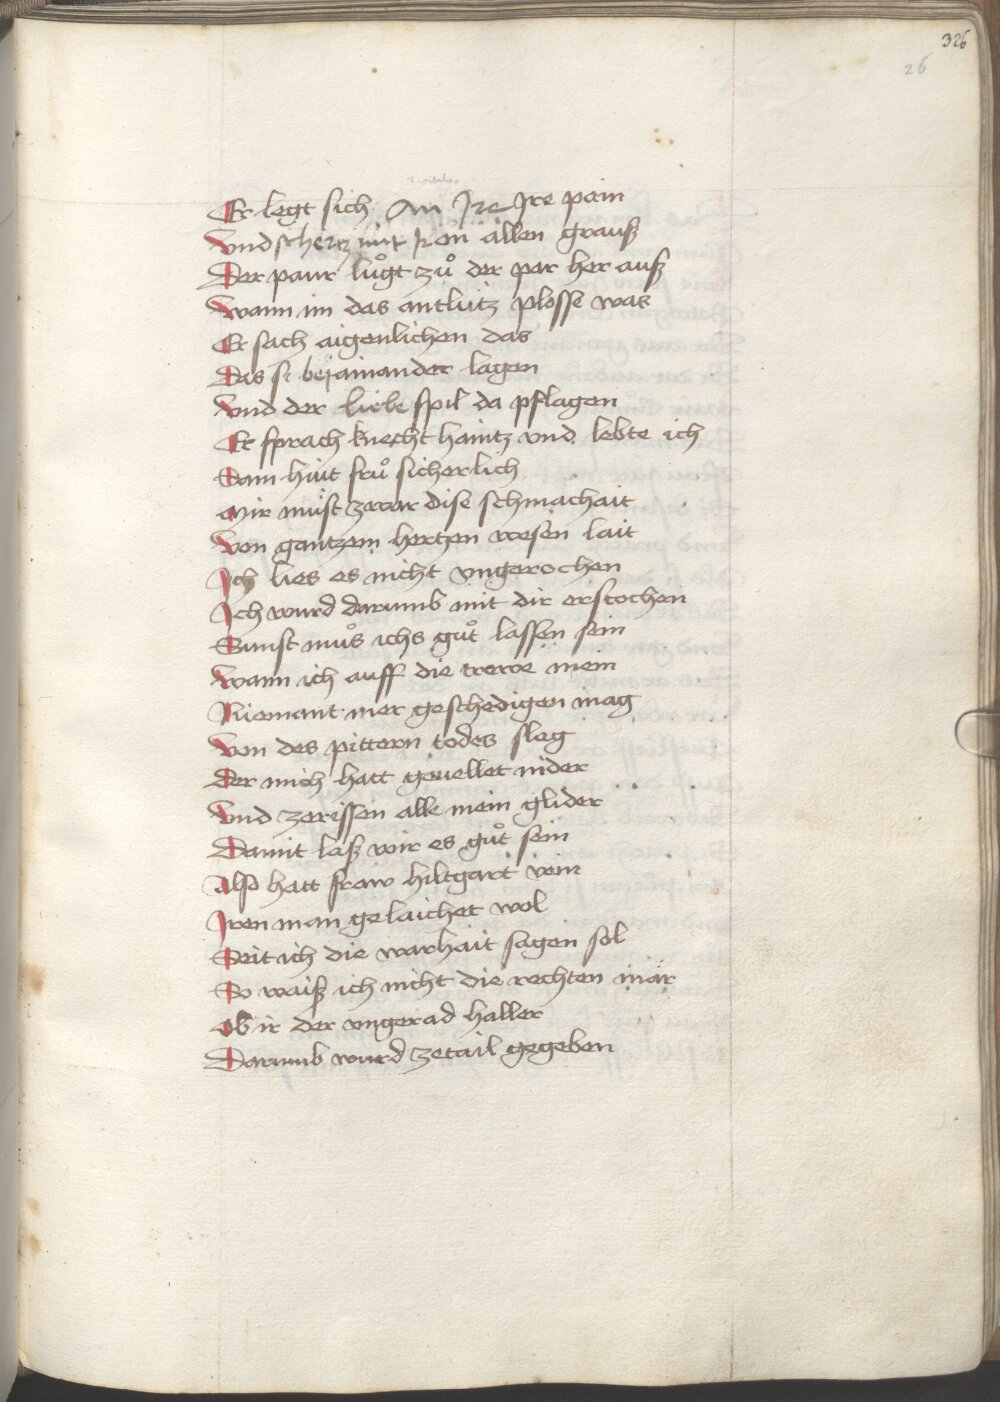 326
26
Er legt sich An Ire Ire pain
Vnd schertz mit Ir on allen grauß
Der paur lůgt zů der par her auß
Wann im das antlutz plosse was
Er sach aigenlichen das
Das si beÿainander lagen
Vnd der liebe spil da pflagen
Er sprach knecht haintz vnd lebte ich
Dann hiut frů sicherlich
Mir müst zwar dise schmachait
Von gantzem hertzen wesen lait
Ich lies es nicht vngerochen
Ich wurd darumb mit dir erstochen
Sunst můs ichs gůt lassen sein
Wann ich auff die trewe mein
Niemant mer geschedigen mag
Von des pittern todes slag
Der mich hatt geuellet nider
Vnd zerissen alle mein glider
Damit laß wir es gůt sein
Also hatt fraw hiltgart vein
Iren man gelaichet wol
Seit ich die warhait sagen sol
So waiß ich nicht die rechten mär
Ob ir der vngerad haller
Darumb wurd zetail gegeben